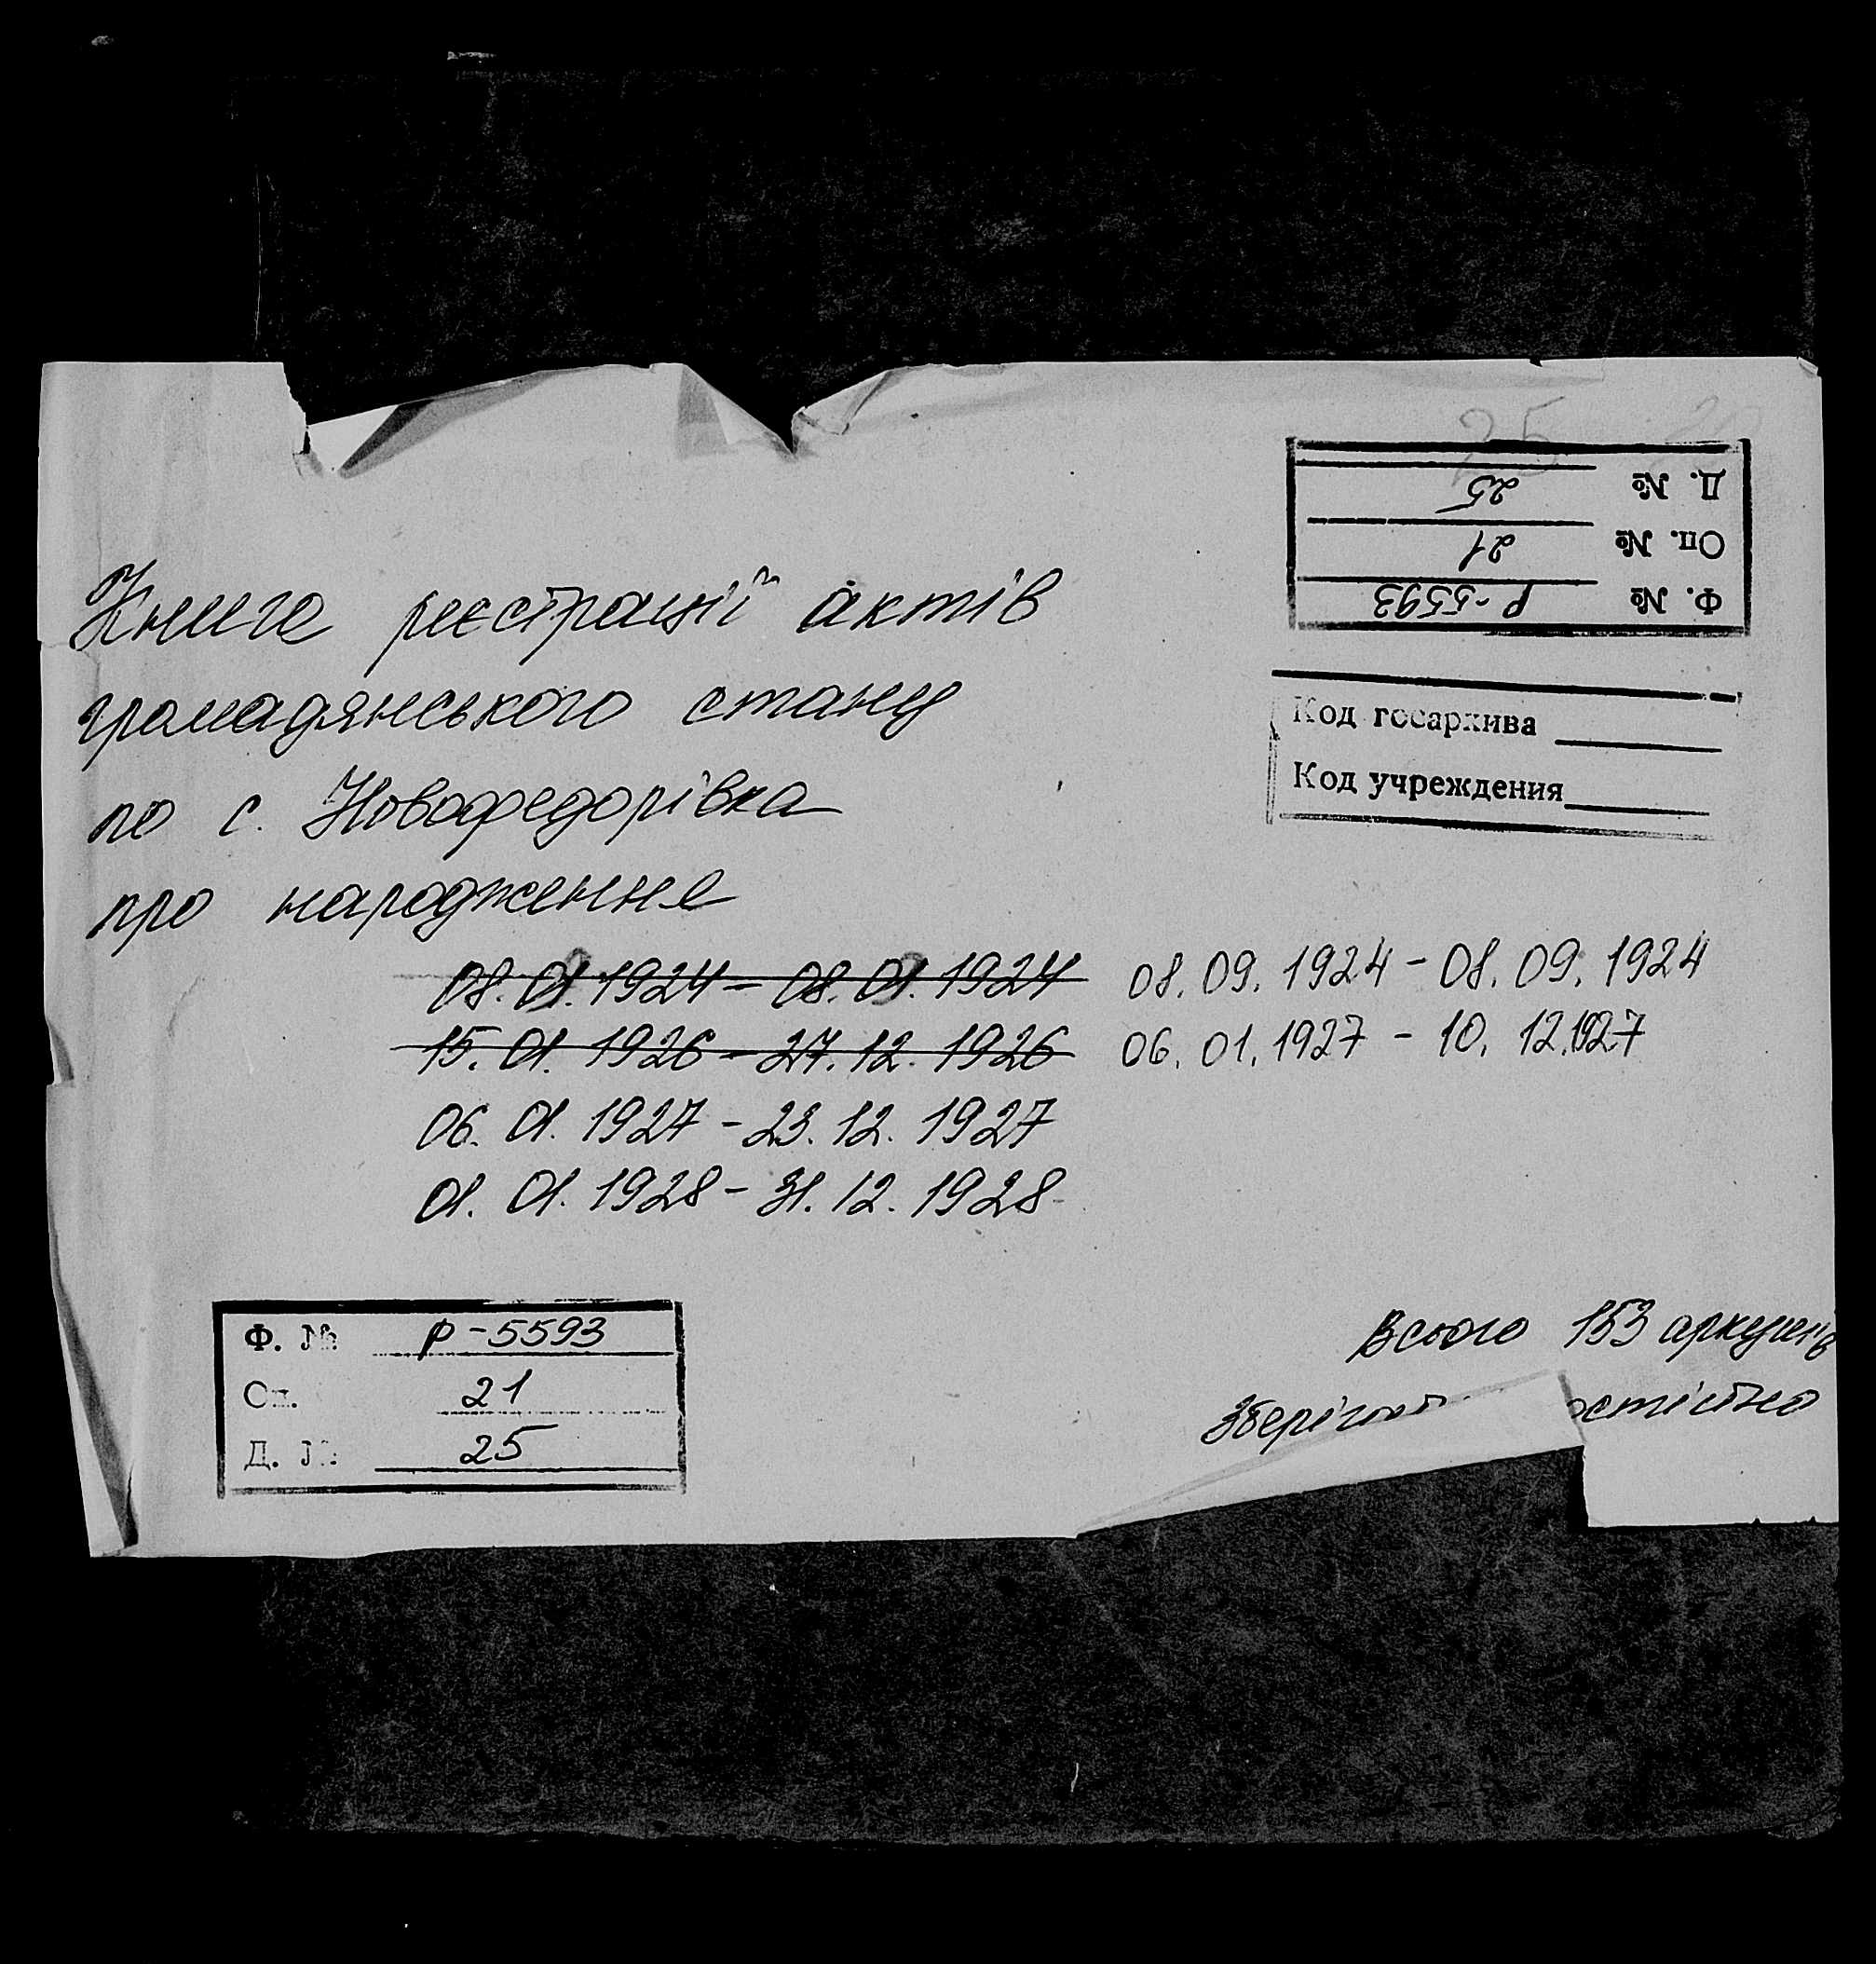 25
Д. № 25
Оп. № 21
Ф. № Р-5593
Код госархива
Код учреждения
Книга реєстрації актів
громадянського стану
по с. Новофедорівка
про народження
08.01.1924 - 08.01.1924 08.09.1924 - 08.09.1924
15.01.1926 - 27.12.1926 06.01.1927 - 10.12.1927
06.01.1927 - 23.12.1927
01.01.1928 - 31.12.1928
Ф. № Р-5593
Оп. 21
Д. № 25
Всього 153 аркушів